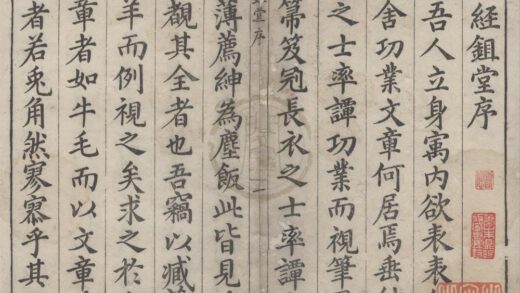 經鉏堂序
吾人立身寓內欲表表
舍功業文章何居焉垂
之士率譚功業而視筆
箒笈冠長衣之士率譚
薄薦紳為塵飯此皆見
觀其全者也吾竊以臧
羊而例視之矣求之於
章者如牛毛而以文章
者若兎角然寥寥乎其
堂序